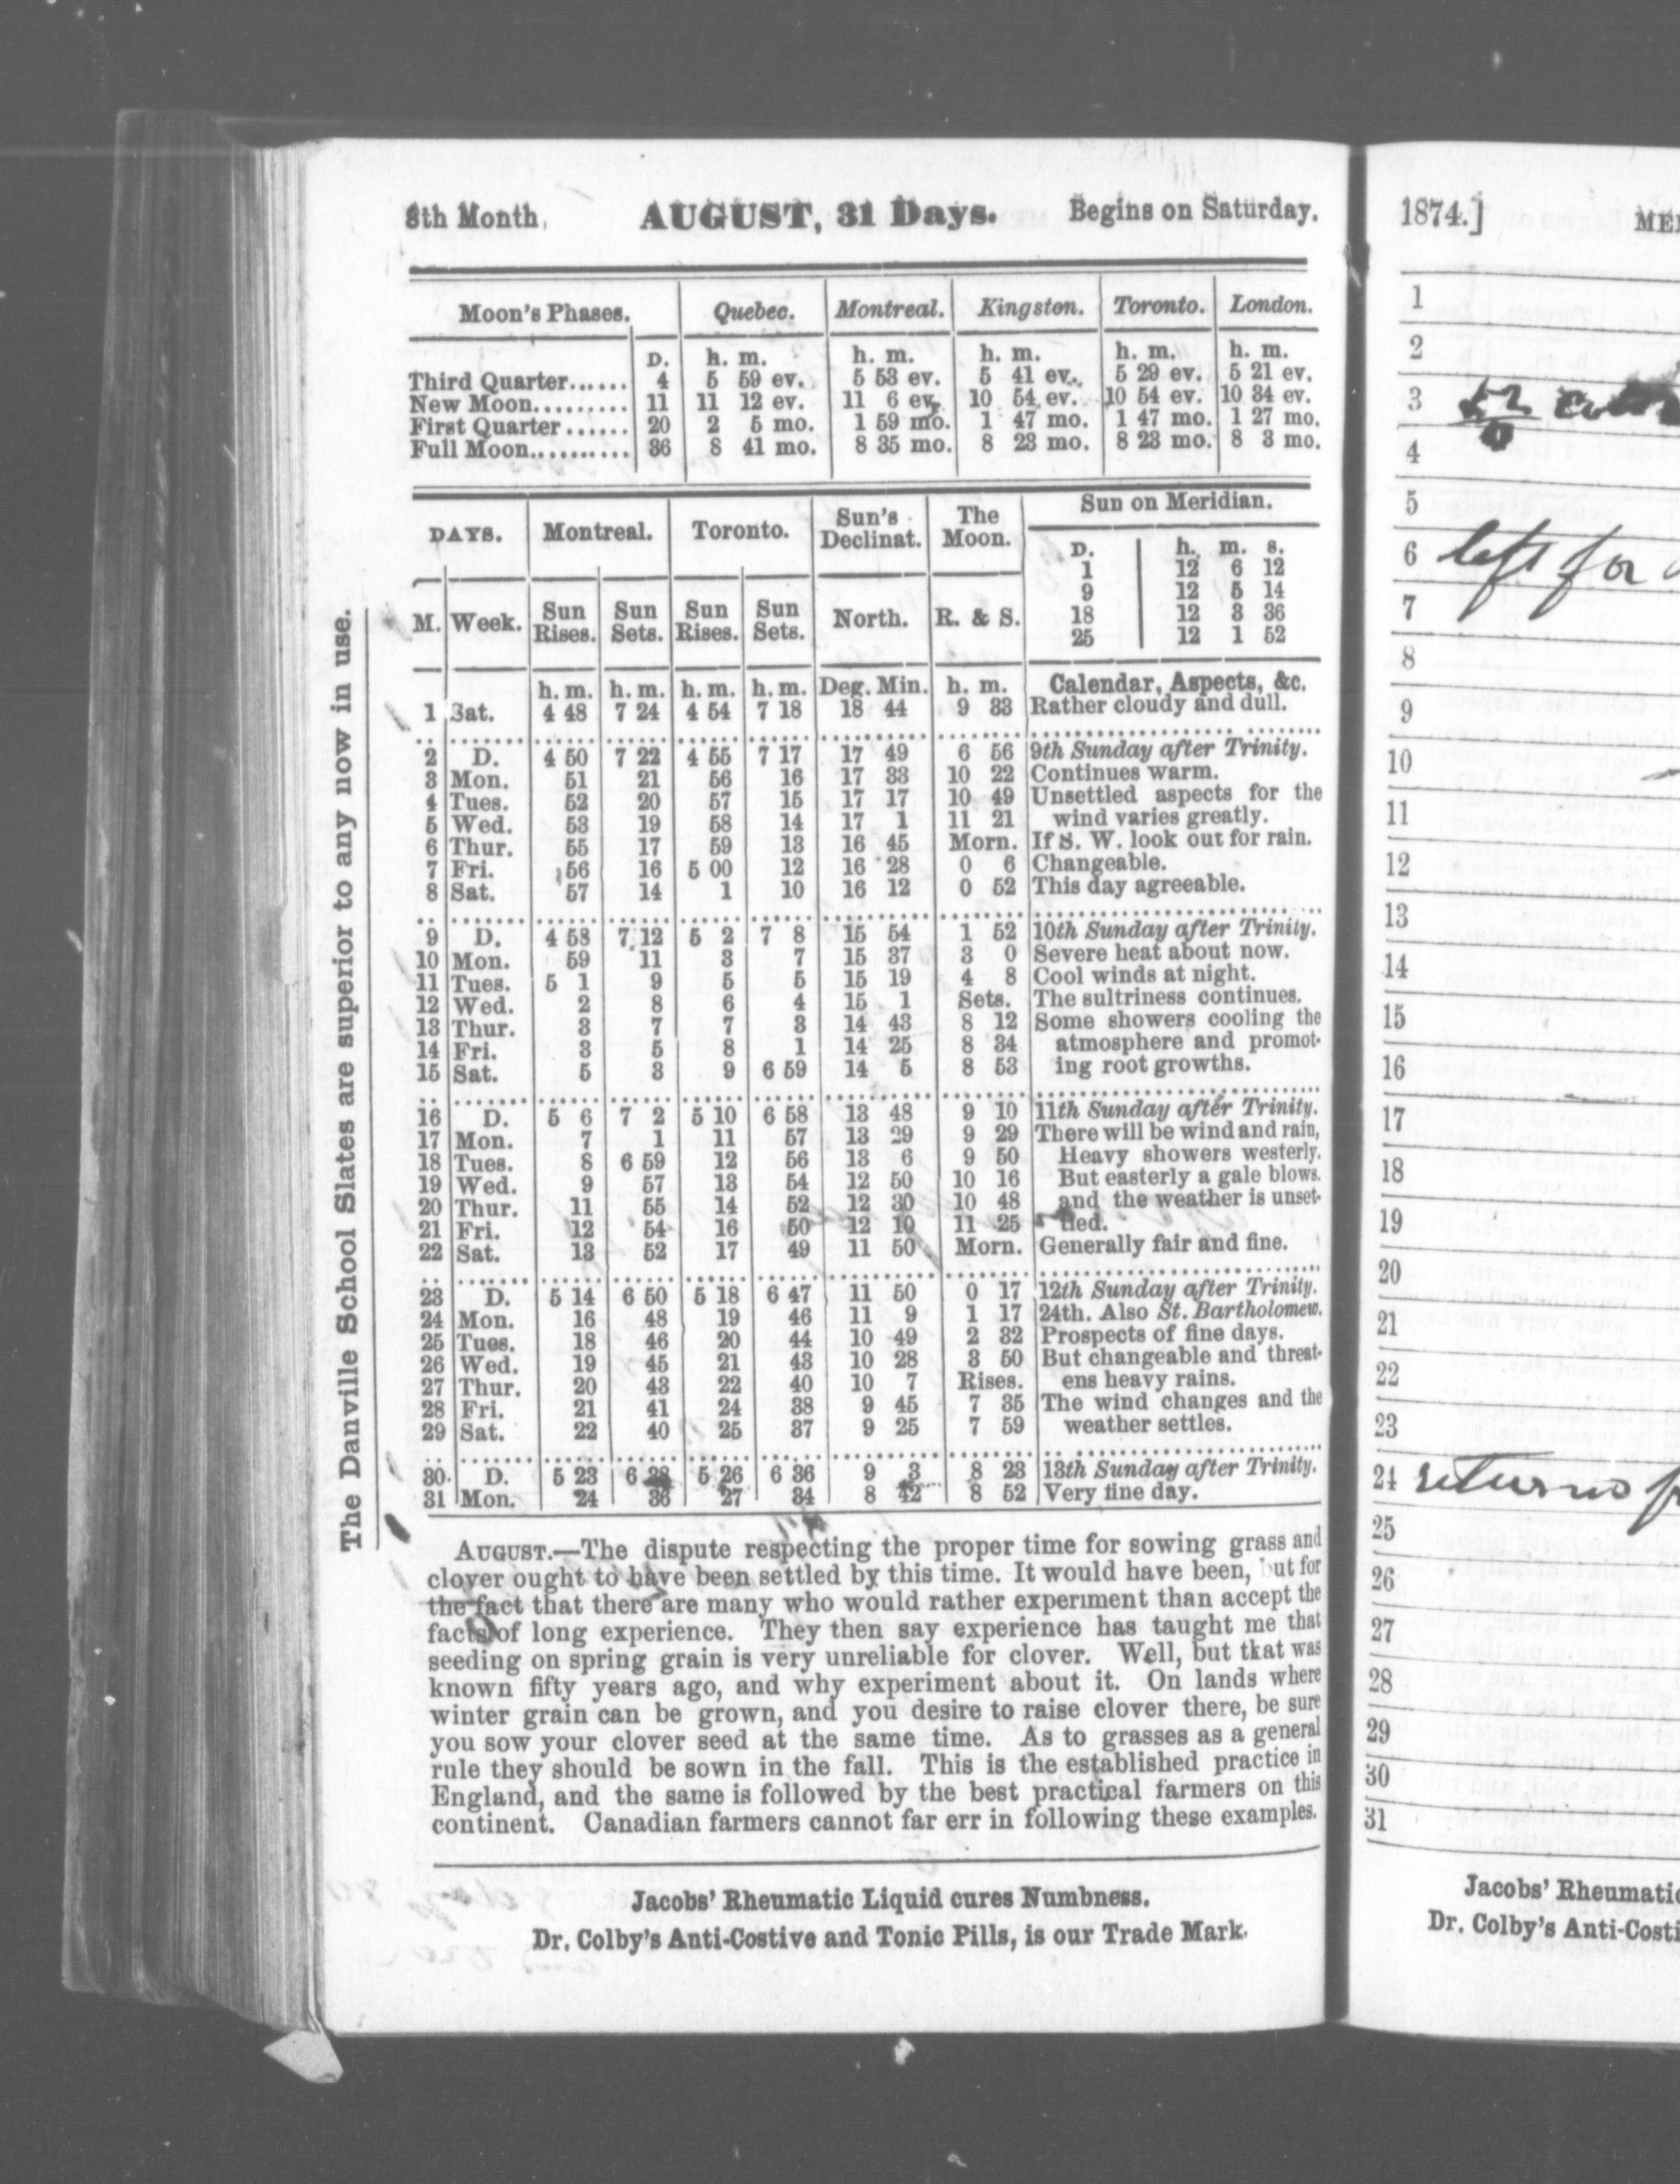 8th Month, AUGUST, 31 Days. Begins on Saturday.
Moon's Phases. Quebec. Montreal. Kingston. Toronto. London.
D. h. m. h. m. h. m. h. m. h. m.
Third Quarter...... 4 5 59 ev. 5 53 ev. 5 41 ev. 5 29 ev. 5 21 ev.
New Moon......... 11 11 12 ev. 11 6 ev. 10 54 ev. 10 54 ev. 10 34 ev.
First Quarter ...... 20 2 5 mo. 1 59 mo. 1 47 mo. 1 47 mo. 1 27 mo.
Full Moon.......... 36 8 41 mo. 8 35 mo. 8 23 mo. 8 23 mo. 8 3 mo.
DAYS. Montreal. Toronto. Sun's Declinat. The Moon. Sun on Meridian.
D. h. m. s.
1 12 6 12
9 12 5 14
18 12 3 36
25 12 1 52
M. Week. Sun Rises. Sun Sets. Sun Rises. Sun Sets. North. R. & S.
h. m. h. m. h. m. h. m. Deg. Min. h. m. Calendar, Aspects, &c.
1 Sat. 4 48 7 24 4 54 7 18 18 44 9 33 Rather cloudy and dull.
2 D. 4 50 7 22 4 55 7 17 17 49 6 56 9th Sunday after Trinity.
3 Mon. 51 21 56 16 17 33 10 22 Continues warm.
4 Tues. 52 20 57 15 17 17 10 49 Unsettled aspects for the
5 Wed. 53 19 58 14 17 1 11 21 wind varies greatly.
6 Thur. 55 17 59 13 16 45 Morn. If S. W. look out for rain.
7 Fri. 56 16 5 00 12 16 28 0 6 Changeable.
8 Sat. 57 14 1 10 16 12 0 52 This day agreeable.
9 D. 4 58 7 12 5 2 7 8 15 54 1 52 10th Sunday after Trinity.
10 Mon. 59 11 3 7 15 37 3 0 Severe heat about now.
11 Tues. 5 1 9 5 5 15 19 4 8 Cool winds at night.
12 Wed. 2 8 6 4 15 1 Sets. The sultriness continues.
13 Thur. 3 7 7 3 14 43 8 12 Some showers cooling the
14 Fri. 3 5 8 1 14 25 8 34 atmosphere and promot-
15 Sat. 5 3 9 6 59 14 5 8 53 ing root growths.
16 D. 5 6 7 2 5 10 6 58 13 48 9 10 11th Sunday after Trinity.
17 Mon. 7 1 11 57 13 29 9 29 There will be wind and rain,
18 Tues. 8 6 59 12 56 13 6 9 50 Heavy showers westerly.
19 Wed. 9 57 13 54 12 50 10 16 But easterly a gale blows.
20 Thur. 11 55 14 52 12 30 10 48 and the weather is unset-
21 Fri. 12 54 16 50 12 10 11 25 tled.
22 Sat. 13 52 17 49 11 50 Morn. Generally fair and fine.
23 D. 5 14 6 50 5 18 6 47 11 50 0 17 12th Sunday after Trinity.
24 Mon. 16 48 19 46 11 9 1 17 24th. Also St. Bartholomew.
25 Tues. 18 46 20 44 10 49 2 32 Prospects of fine days.
26 Wed. 19 45 21 43 10 28 3 50 But changeable and threat-
27 Thur. 20 43 22 40 10 7 Rises. ens heavy rains.
28 Fri. 21 41 24 38 9 45 7 35 The wind changes and the
29 Sat. 22 40 25 37 9 25 7 59 weather settles.
30 D. 5 23 6 38 5 26 6 36 9 3 8 23 13th Sunday after Trinity.
31 Mon. 24 36 27 34 8 42 8 52 Very fine day.
AUGUST.—The dispute respecting the proper time for sowing grass and
clover ought to have been settled by this time. It would have been, but for
the fact that there are many who would rather experiment than accept the
facts of long experience. They then say experience has taught me that
seeding on spring grain is very unreliable for clover. Well, but tkat was
known fifty years ago, and why experiment about it. On lands where
winter grain can be grown, and you desire to raise clover there, be sure
you sow your clover seed at the same time. As to grasses as a general
rule they should be sown in the fall. This is the established practice in
England, and the same is followed by the best practical farmers on this
continent. Canadian farmers cannot far err in following these examples.
Jacobs' Rheumatic Liquid cures Numbness.
Dr. Colby's Anti-Costive and Tonic Pills, is our Trade Mark.
The Danville School Slates are superior to any now in use.
1874.] MEM
1
2
3
4
5
6 left for
7
8
9
10
11
12
13
14
15
16
17
18
19
20
21
22
23
24 returno
25
26
27
28
29
30
31
Jacobs' Rheumatic
Dr. Colby's Anti-Costi